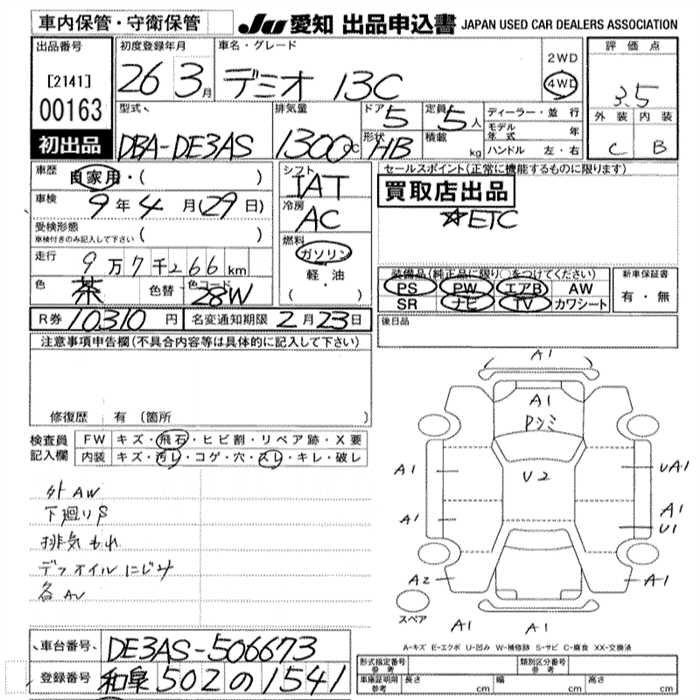 車内保管・守衛保管
JU 愛知 出品申込書 JAPAN USED CAR DEALERS ASSOCIATION
出品番号
[2141]
00163
初出品
初度登録年月
26 3月
車名・グレード
デミオ 13C
2WD
4WD
評価点
3.5
外装 内装
C B
型式
DBA-DE3AS
排気量
1300cc
ドア 5
定員 5人
形状 HB
積載 kg
ディーラー・並行
モデル年式 年
ハンドル 左・右
車歴 自家用・( )
車検 9年4月(29日)
受検形態 ( )
車検付きのみ記入して下さい
走行 9万7千266km
色 茶 色替 色コード 28W
シフト
IAT
冷房
AC
燃料
ガソリン
軽・油
( )
セールスポイント(正常に機能するものに限ります)
買取店出品
☆ETC
装備品(純正品に限り○をつけてください)
PS PW エアB AW
SR ナビ TV カワシート
新車保証書
有・無
R券 10310円 名変通知期限 2月23日
後日品
注意事項申告欄(不具合内容等は具体的に記入して下さい)
修復歴 有(箇所 )
検査員記入欄
FW キズ・飛石・ヒビ割・リペア跡・X要
内装 キズ・汚レ・コゲ・穴・スレ・キレ・破レ
外AW
下廻りS
排気もれ
デフオイルにじみ
各AU
A1
A1
Pシミ
U2
A1
UA1
A1
A1
U1
A2
A1
A1
A1
スペア
A-キズ E-エクボ U-凹み W-補修跡 S-サビ C-腐食 XX-交換済
車台番号 DE3AS-506673
登録番号 和泉 502 の 1541
形式指定番号 参考
類別区分番号 参考
車庫証明用 参考 長さ cm 幅 cm 高さ cm